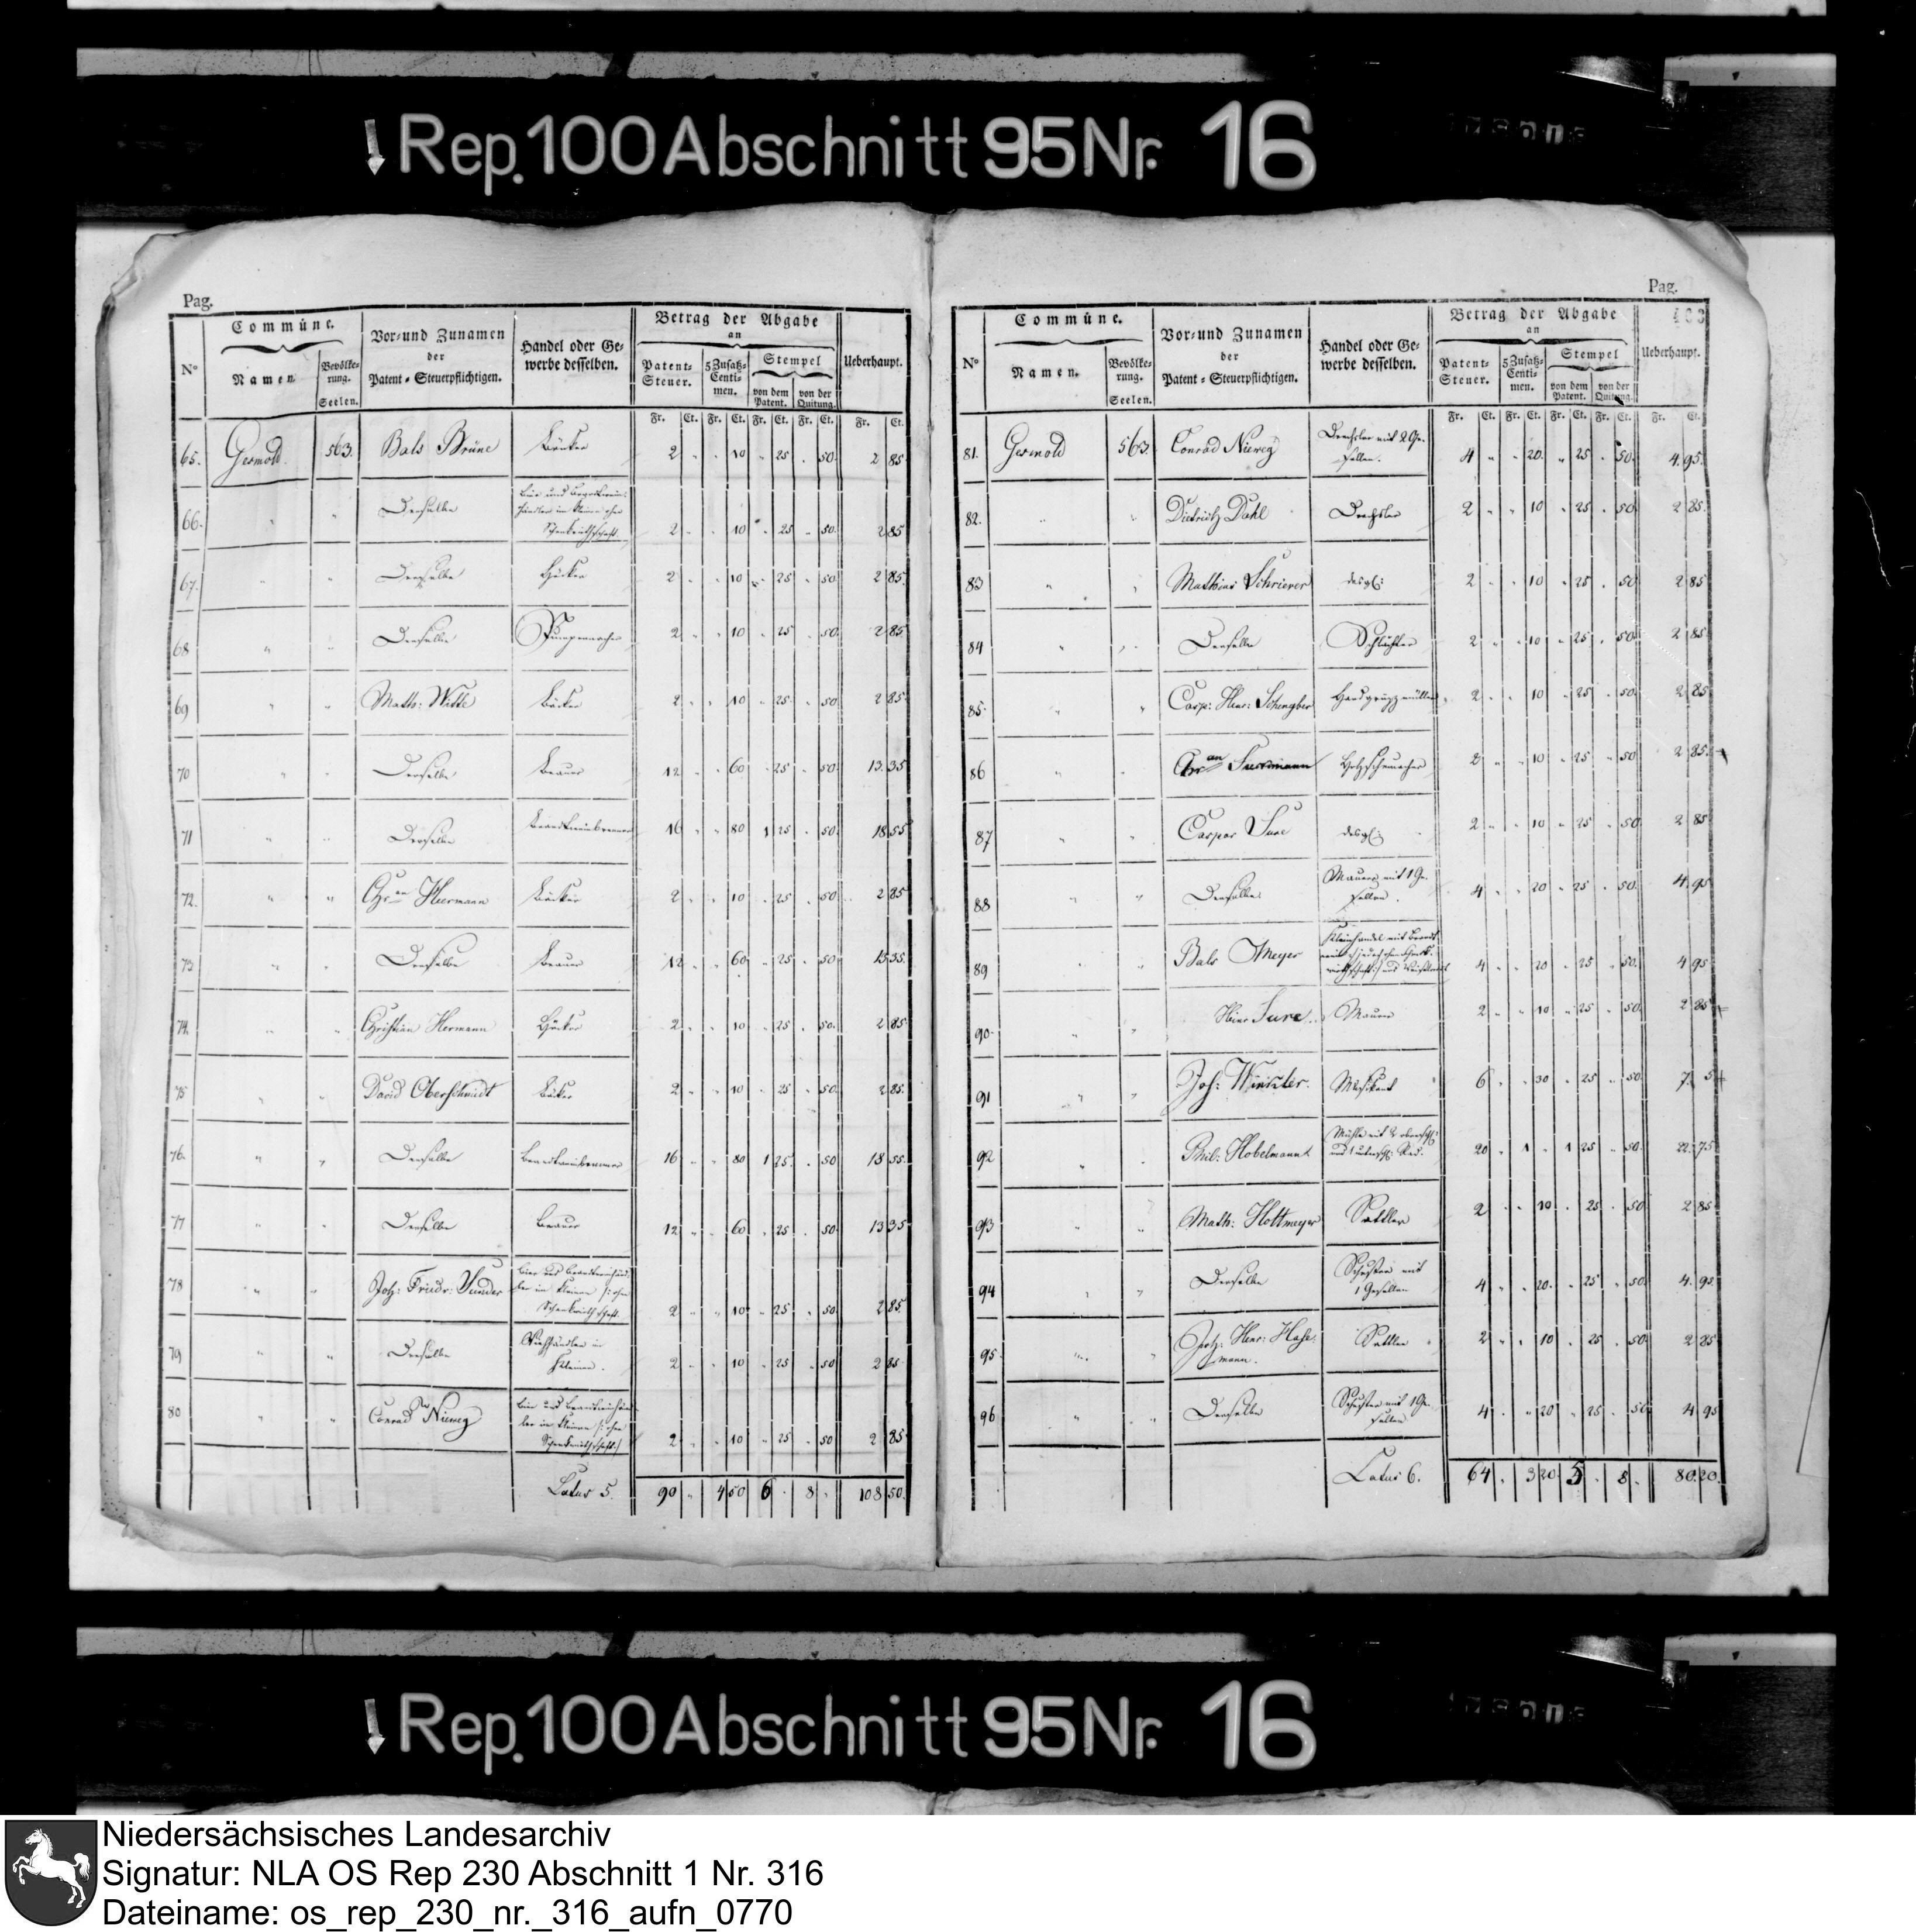 Rep. 100 Abschnitt 95 Nr. 16
Pag.
Commüne.
Vor- und Zunamen
Handel oder Ge-
Betrag der Abgabe
an
N°
der
werbe desselben.
Patent-
5 Zusatz-
Stempel
Ueberhaupt.
Namen.
Bevölke-
rung.
Patent-Steuerpflichtigen.
Steuer.
Centi-
men.
von dem
Patent.
von der
Quitung.
Seelen.
Fr. Ct. Fr. Ct. Fr. Ct. Fr. Ct. Fr. Ct.
65. Gesmold. 563. Bals Brüne Bäcker 2 " " 10 " 25 " 50. 2 85
66. " " Derselbe 2 " " 10 " 25 " 50. 2 85
67. " " Derselbe Höcker 2 " " 10 " 25 " 50. 2 85.
68 " " Derselbe Pumpenmacher 2 " " 10 " 25 " 50. 2 85
69 " " Math: Witte Bäcker 2 " " 10 " 25 " 50 2 85
70 " " Derselbe Brauer 12 " " 60 " 25 " 50. 13. 35
71 " " Derselbe Brandtweinbrenner 16 " " 80 1 25 " 50. 18 55
72. " " Chr:an Heermann Bäcker 2 " " 10 " 25 " 50 2 85
73 " " Derselbe Brauer 12 " " 60 " 25 " 50 13 35.
74. " " Christian Hermann Höcker 2 " " 10 " 25 " 50. 2 85
75 " " David Oberschmidt Bäcker 2 " " 10 " 25 " 50. 2 85.
76. " " Derselbe Brandtweinbrenner 16 " " 80 1 25 " 50 18 55
77 " " Derselbe Brauer 12 " " 60 " 25 " 50 13 35
78 " " Joh: Friedr: Sunder
Schenkwirthschaft. 2 " " 10 " 25 " 50 2 85
79 " " Derselbe
Kleinen. 2 " " 10 " 25 " 50 2 85
80 " " Conrad Nieweg
2 " " 10 " 25 " 50 2 85
Latus 5. 90 " 4 50 6 " 8 " 108 50.
Pag.
Commüne.
Vor- und Zunamen
Handel oder Ge-
Betrag der Abgabe
an
N°
der
werbe desselben.
Patent-
5 Zusatz-
Stempel
Ueberhaupt.
Namen.
Bevölke-
rung.
Patent-Steuerpflichtigen.
Steuer.
Centi-
men.
von dem
Patent.
von der
Quitung.
Seelen.
Fr. Ct. Fr. Ct. Fr. Ct. Fr. Ct. Fr. Ct.
81. Gesmold 563. Conrad Nieweg Drechsler mit 2 Ge-
sellen. 4 " " 20. " 25 " 50. 4. 95.
82. " " Dietrich Dahl Drechsler 2 " " 10 " 25 " 50. 2 85.
83 " " Mathias Schriever desgl: 2 " " 10 " 25 " 50 2 85
84 " " Derselbe Schlächter 2 " " 10 " 25 " 50 2 85
85. " " Casp: Henr: Schengber 2 " " 10 " 25 " 50 2 85
86 " " Chr:an Suermann Holzschumacher 2 " " 10 " 25 " 50 2 85.
87 " " Caspar Sure desgl: 2 " " 10 " 25 " 50 2 85
88 " " Derselbe Maurer mit 1 Ge-
sellen. 4 " " 20 " 25 " 50. 4. 95
89 " " Bals Meyer
4 " " 20 " 25 " 50. 4 95
90. " " Henr Sure Maurer 2 " " 10 " 25 " 50. 2 85
91 " " Joh: Winzler. Musikant 6 " " 30 " 25 " 50 7. 5
92 " " Phil: Hobelmann 20 " 1 " 1 25 " 50. 22. 75
93 " " Math: Hottmeyer Sattler 2 " " 10 " 25 " 50 2 85
94 " " Derselbe Schuster mit
1 Gesellen 4 " " 20. " 25 " 50. 4. 95
95. " " Joh: Henr: Hase-
mann. Sattler 2 " " 10 " 25 " 50. 2 85
96 " " Derselbe Schuster mit 1 Ge-
sellen 4 " " 20 " 25 " 50 4. 95
Latus 6. 64 " 3 20. 5 " 8 " 80. 20.
Rep. 100 Abschnitt 95 Nr. 16
Niedersächsisches Landesarchiv
Signatur: NLA OS Rep 230 Abschnitt 1 Nr. 316
Dateiname: os_rep_230_nr._316_aufn_0770